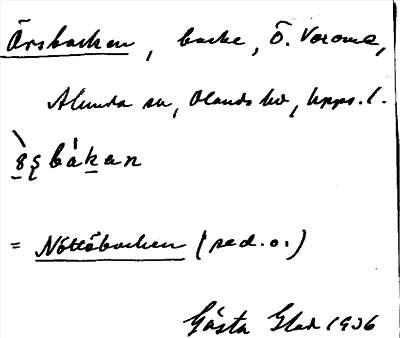 Örsbacken, backe, Ö. Voroma,
Alunda sn, Olands hd, Upps. l.
= Nöttöbacken (se d. o.)
Gösta Glad 1936